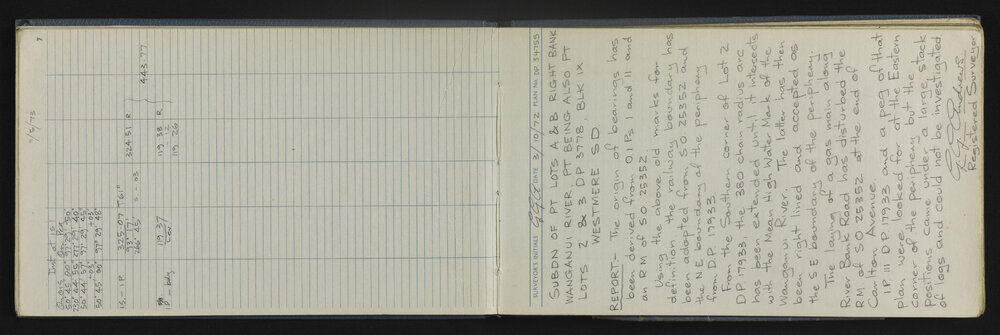 7
11/5/73
Inst at IS
On ors Peg
50° 45' 00" 97° 29' 50"
230° 44' 55" 97° 29' 40"
50° 44' 57" 97° 29' 45"
03" 03"
50° 45' 00" 97° 29' 48"
IS - IP 325.07 T61° 324.51 R
93° 17'
26° 45' S - 03
443.77
IP - bdy 119.37 119.38 R
Cov 12
119 26
SURVEYOR'S INITIALS DATE 3/10/72 PLAN NO. DP 34755
SUBDN OF PT LOTS A & B RIGHT BANK
WANGANUI RIVER, PT BEING ALSO PT
LOTS 2 & 3 DP 3778, BLK IX
WESTMERE S.D.
REPORT:- The origin of bearings has
been derived from O.I.Ps I and II and
an RM of SO 25352
Using the above old marks for
definition the railway boundary has
been adopted from S.O. 25352 and
the N boundary of the periphery
from D.P. 17933
From the Southern corner of Lot 2
DP 17933, the 380 chain radius arc
has been extended until it intersects
with the Mean High Water Mark of the
Wanganui River. The latter has then
been right lined and accepted as
the SE boundary of the periphery.
The laying of a gas main along
River Bank Road has disturbed the
RM of SO 25352 at the end of
Carlton Avenue
IP III DP 17933 and a peg of that
plan were looked for at the Eastern
corner of the periphery but the
positions came under a large stack
of logs and could not be investigated.
G G Andrews
Registered Surveyor